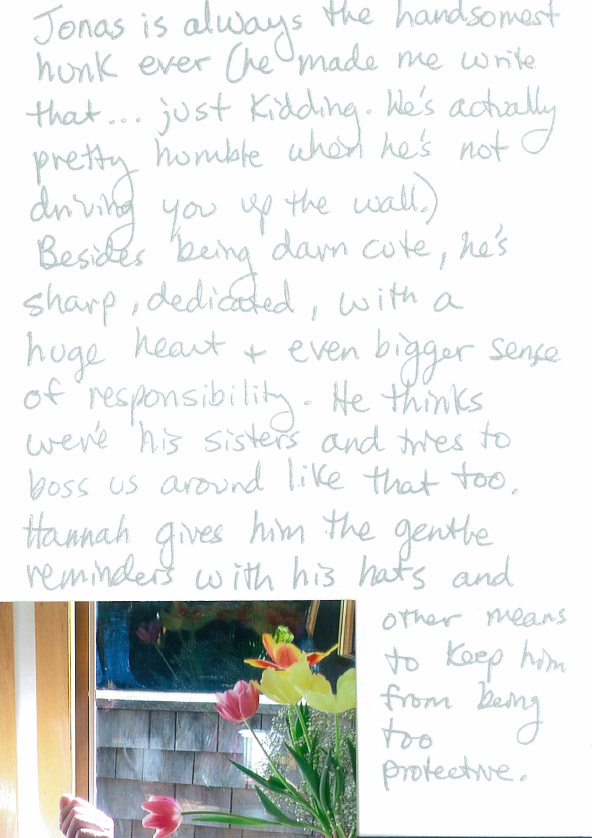 Jonas is always the handsomest
hunk ever (he made me write
that... just kidding. He's actually
pretty humble when he's not
driving you up the wall.)
Besides being darn cute, he's
sharp, dedicated, with a
huge heart + even bigger sense
of responsibility. He thinks
we're his sisters and tries to
boss us around like that too.
Hannah gives him the gentle
reminders with his hats and
other means
to keep him
from being
too
protective.